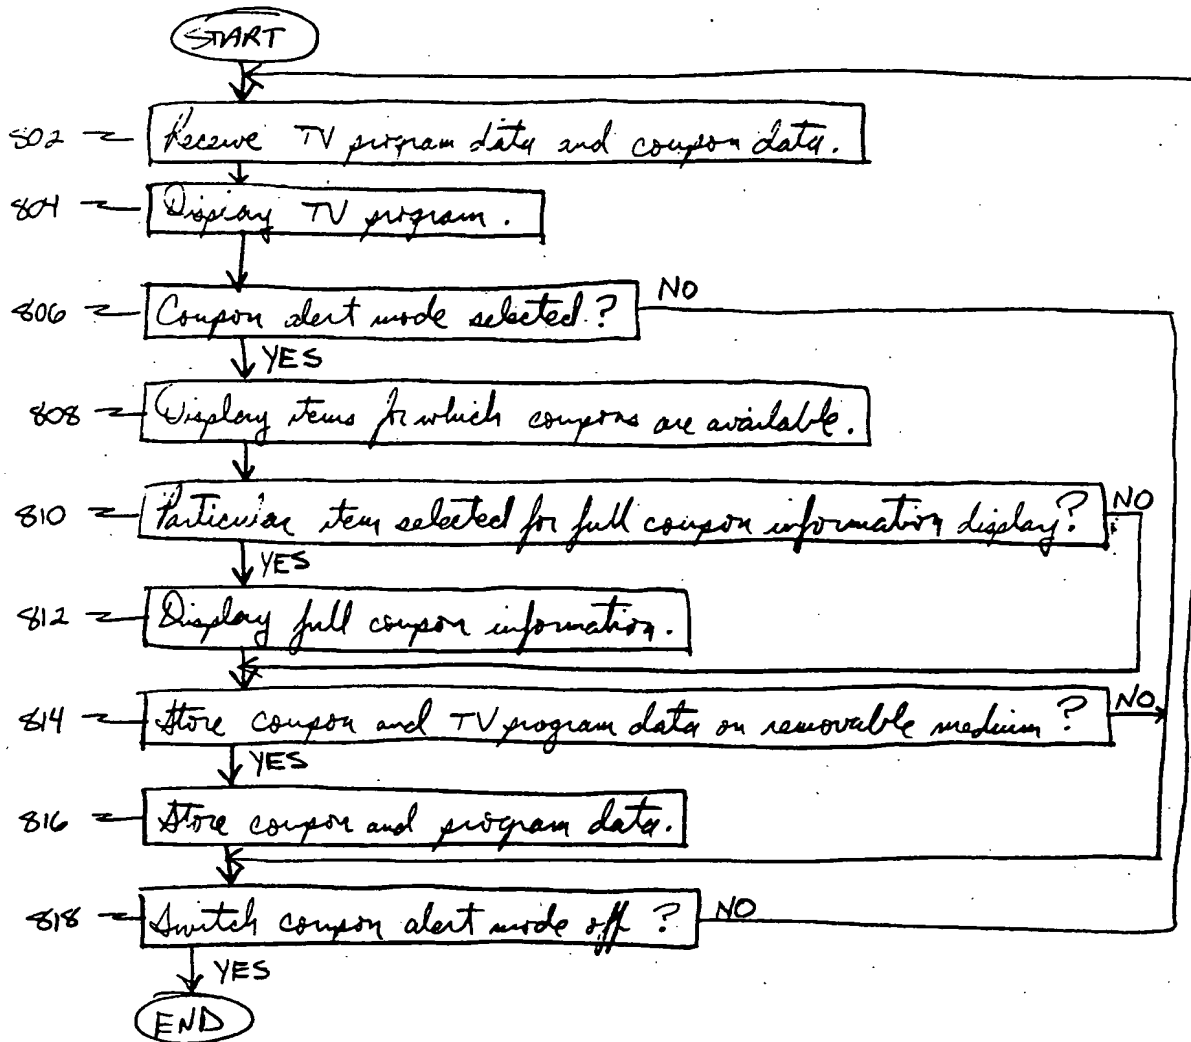 START
802 Receive TV program data and coupon data.
804 Display TV program.
806 Coupon alert mode selected? NO
YES
808 Display items for which coupons are available.
810 Particular item selected for full coupon information display? NO
YES
812 Display full coupon information.
814 Store coupon and TV program data on removable medium? NO
YES
816 Store coupon and program data.
818 Switch coupon alert mode off? NO
YES
END